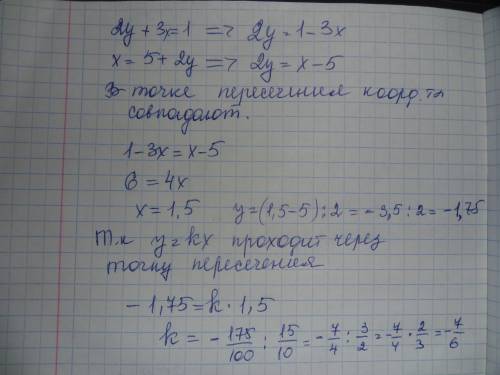 2y + 3x = 1 => 2y = 1 - 3x
x = 5 + 2y => 2y = x - 5
В точке пересечения коорд. та
совпадают.
1 - 3x = x - 5
6 = 4x
x = 1,5    y = (1,5 - 5) : 2 = - 3,5 : 2 = -1,75
Т.к y = kx проходит через
точку пересечения
- 1,75 = k · 1,5
k = - 175/100 : 15/10 = - 7/4 : 3/2 = - 7/4 · 2/3 = - 7/6